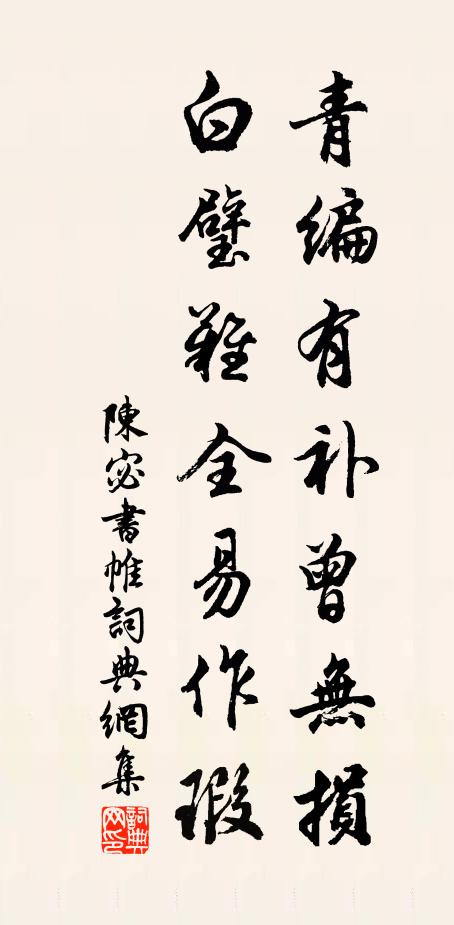 青编有补曾無損
白璧難全易作瑕
陳宓書帷詞典網集
詞典網印